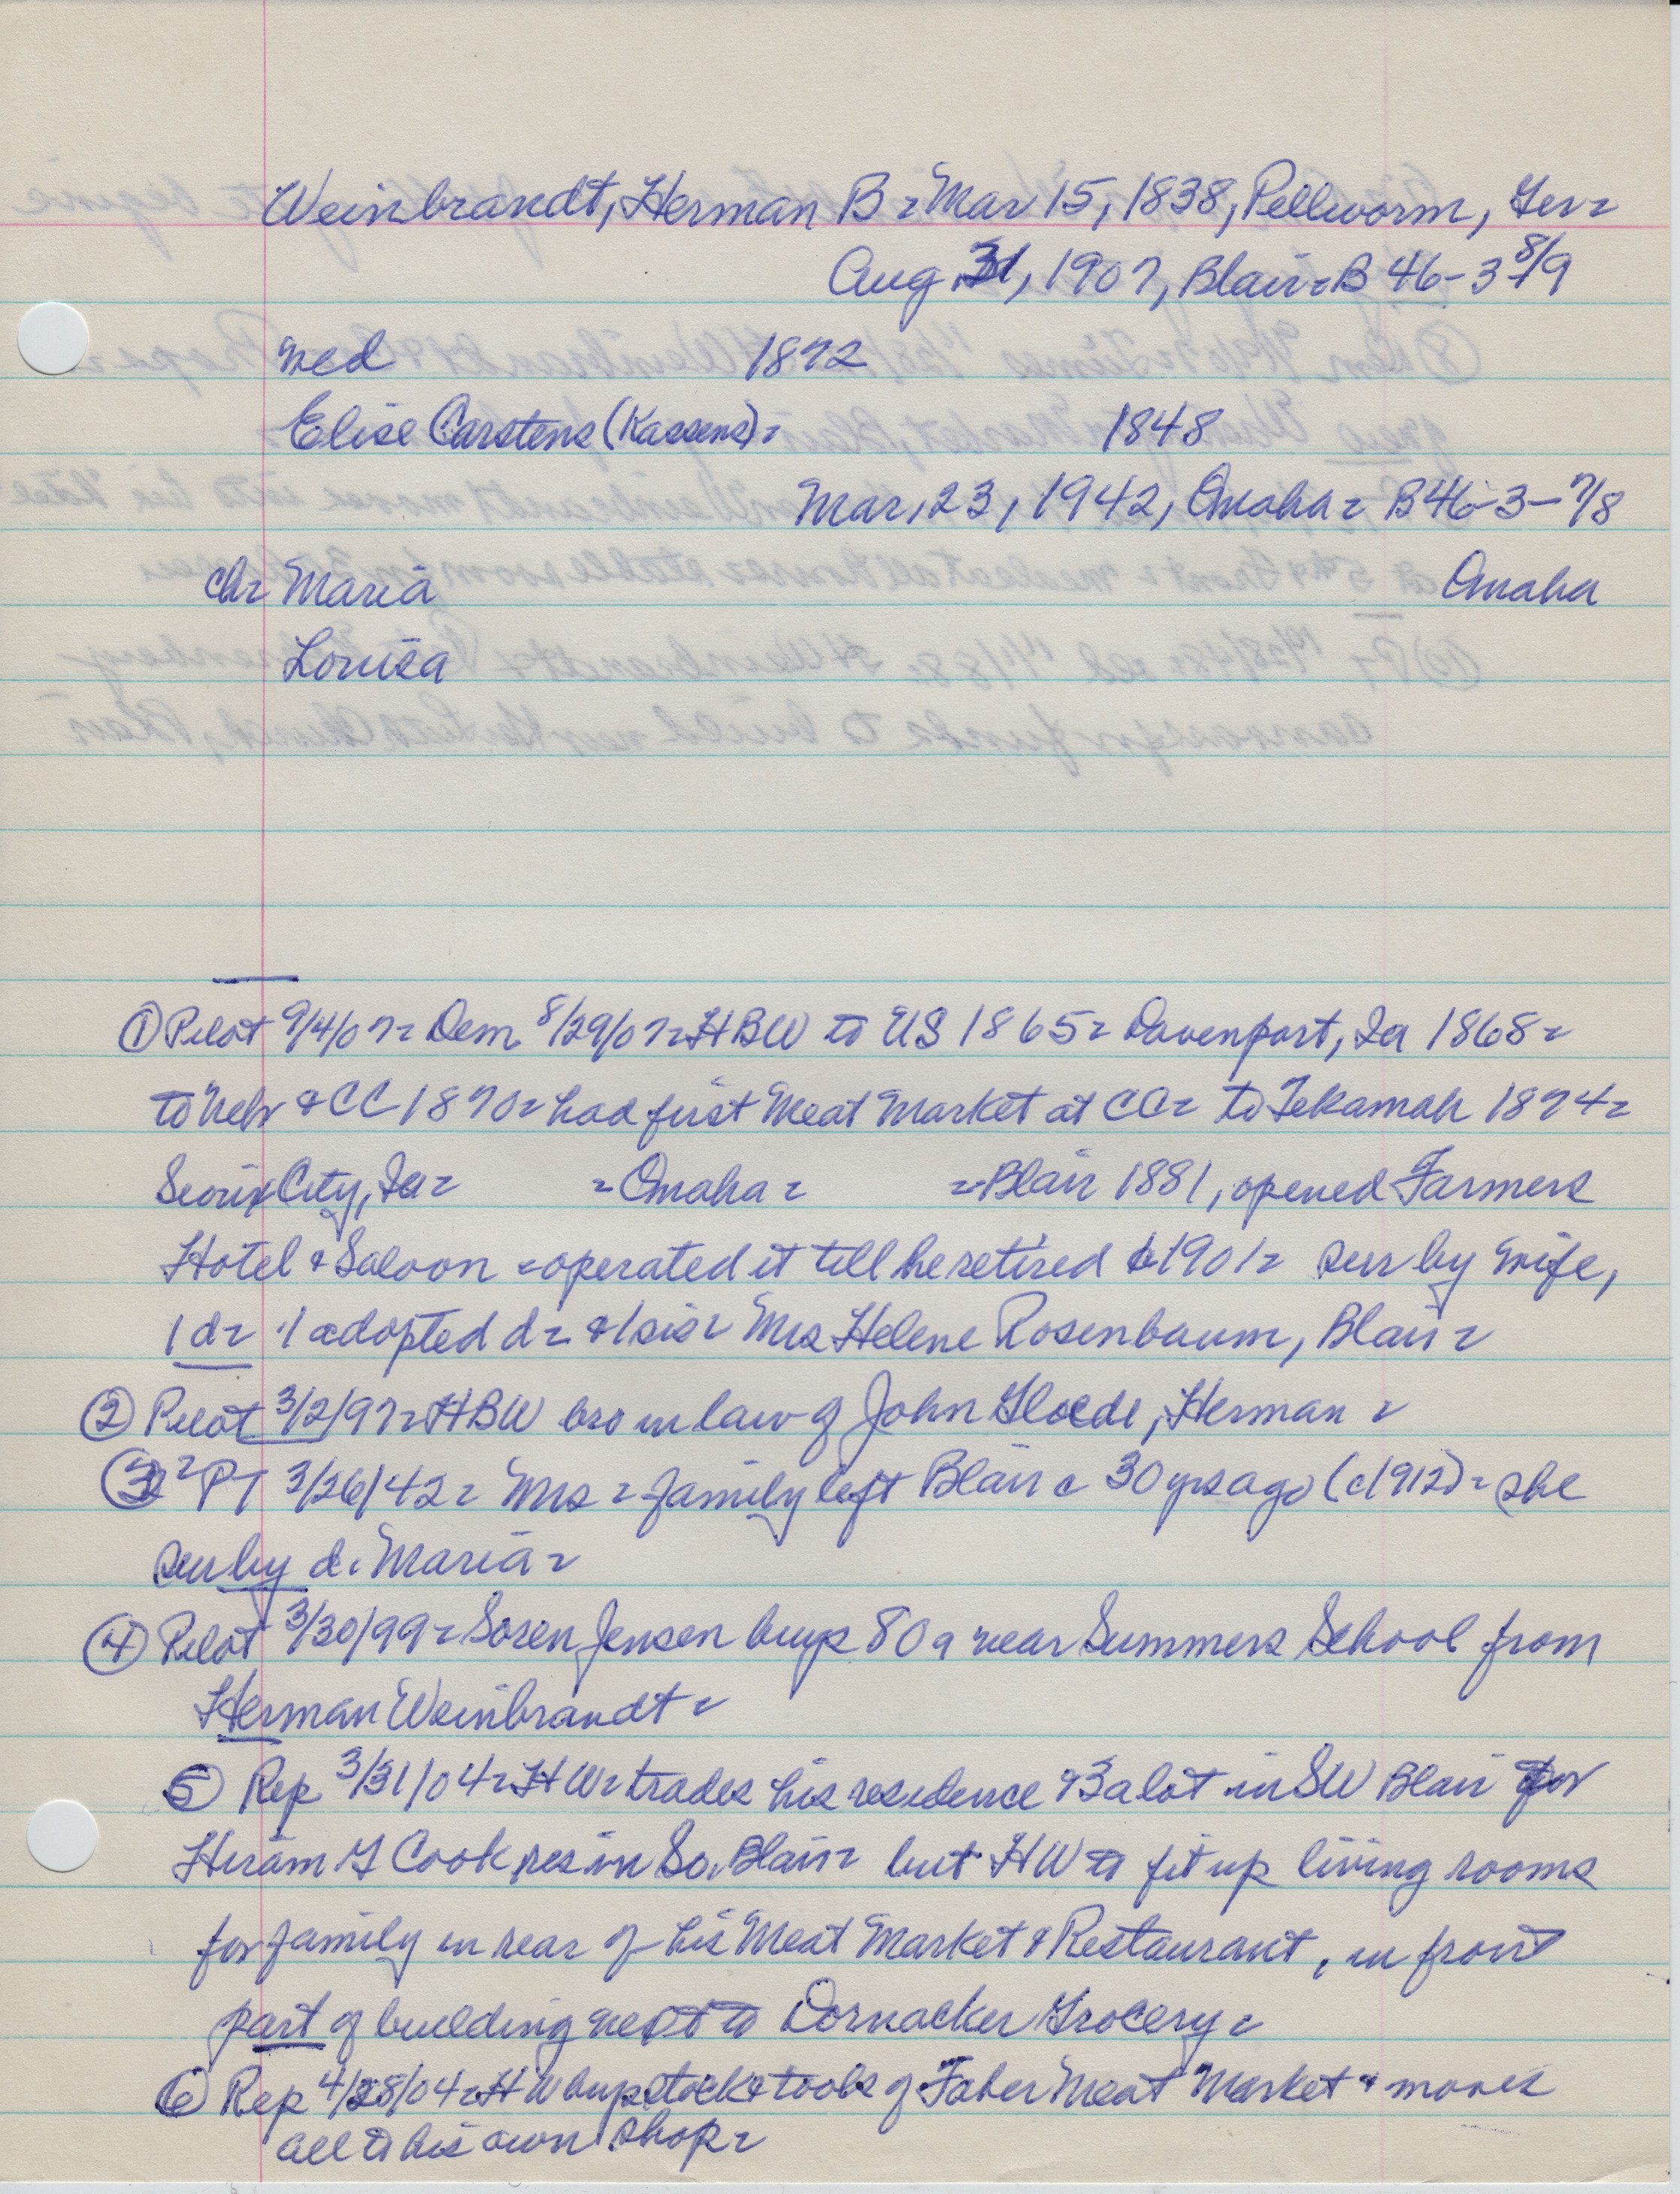 Weinbrandt, Herman B = Mar 15, 1838, Pellworm, Ger =
Aug 31, 1907, Blair = B 46-3 8/9
med 1872
Elise Carstens (Kassens) = 1848
Mar, 23, 1942, Omaha = B 46-3-7/8
ch = Maria Omaha
Louisa
① Pilot 9/4/07 = Dem 8/29/07 = HBW to US 1865 = Davenport, Ia 1868 =
to Neb & CC 1870 = had first Meat Market at CC = to Tekamah 1874 =
Sioux City, Ia = = Omaha = = Blair 1881, opened Farmers
Hotel & Saloon = operated it till he retired c1901 = sur by wife,
1 d = 1 adopted d = & 1 sis = Mrs Helene Rosenbaum, Blair =
② Pilot 3/2/97 = HBW bro in law of John Gloede, Herman =
③ = PT 3/26/42 = Mrs = family left Blair c 30 yrs ago (c1912) = she
sur by d. Maria =
④ Pilot 3/30/99 = Soren Jensen buys 80 a near Summers School from
Herman Weinbrandt =
⑤ Rep 3/31/04 = HW = trades his residence & 3 a lot in SW Blair for
Hiram G Cook res in So. Blair = but HW to fit up living rooms
for family in rear of his Meat Market & Restaurant, in front
part of building next to Dornacker Grocery =
⑥ Rep 4/28/04 = HW buys stock & tools of Faber Meat Market & moves
all to his own shop =